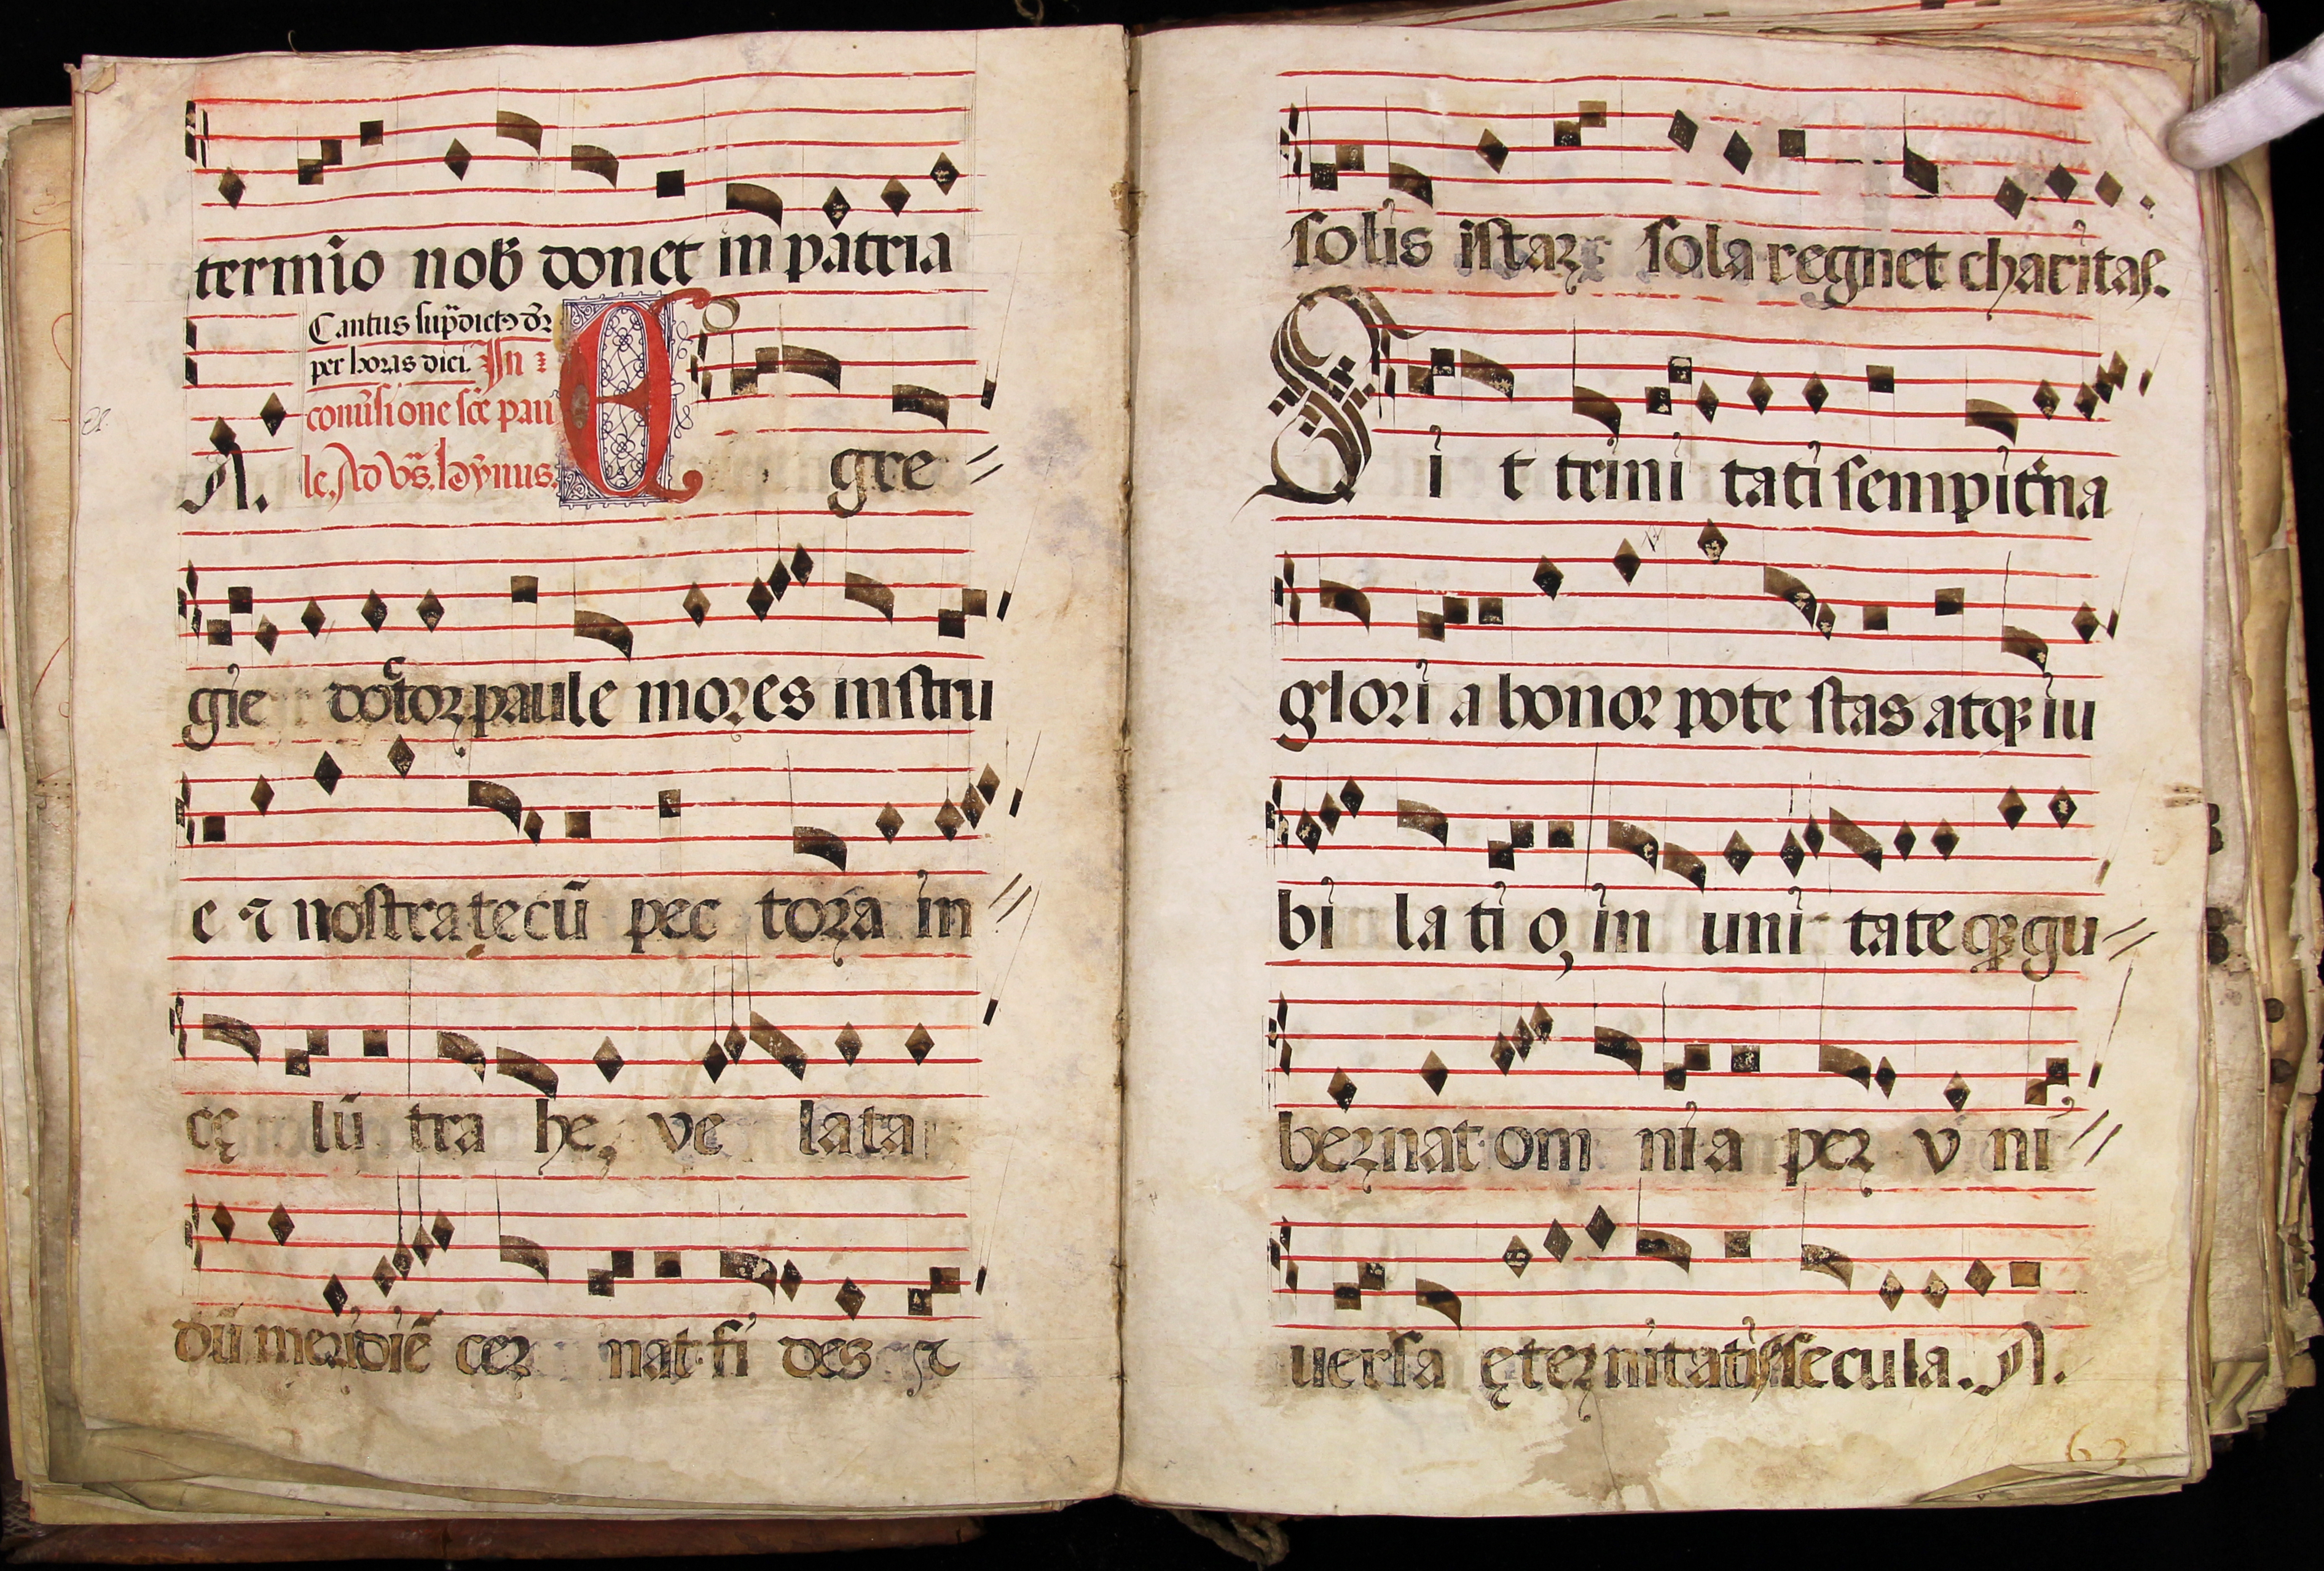 termīo nob̄ donet in pātria
Cantus sup̄dictꝰ dr̄
per horas dici. In
conūsione sc̄e pau
le. Ad vs̄. hȳnus.
A.
E gre
gie doctor paule mores instru
e ⁊ nostra tecū pec tora in
cę lū tra he, ve lata
dū meridiē cer nat fi des ⁊
solis istar sola regnet charitas.
Si t trini tati sempit̄na
glori a honor pote stas atqꝫ iu
bi la ti o, in uni tate qꝫ gu
bernat om ni a per v ni
uersa ęternitatis secula. A.
62